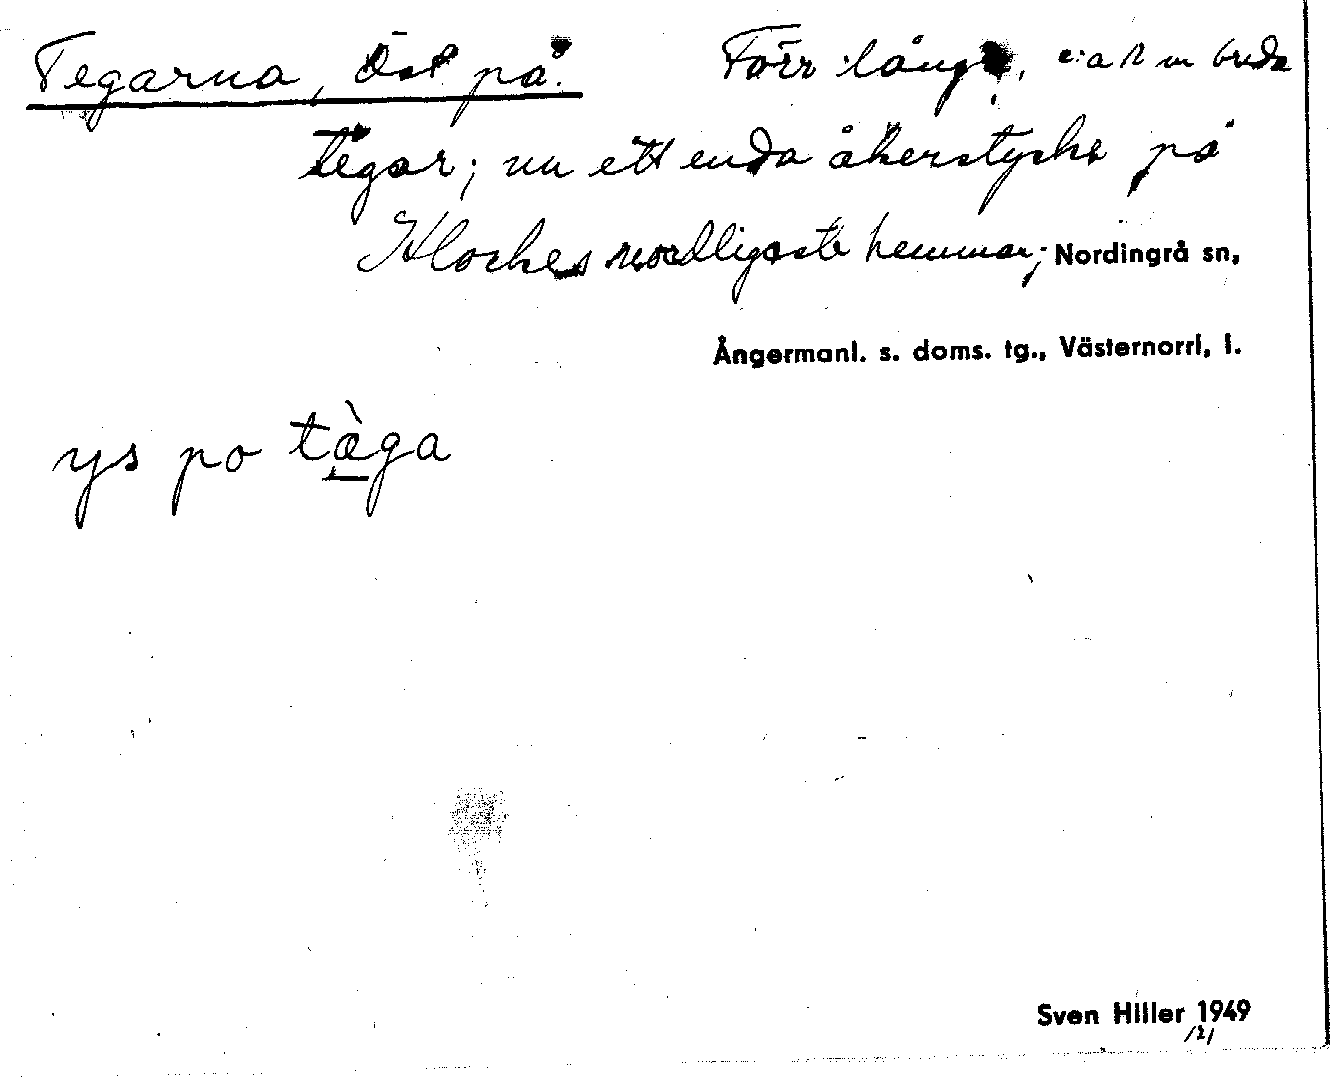 Tegarna, Öst på. Förr långa, c:a 12 m breda
tegar; nu ett enda åkerstycke på
Klockes nordligaste hemman; Nordingrå sn,
Ångermanl. s. doms. tg., Västernorrl. l.
ys po tæ̀ga
Sven Hiller 1949
/2/